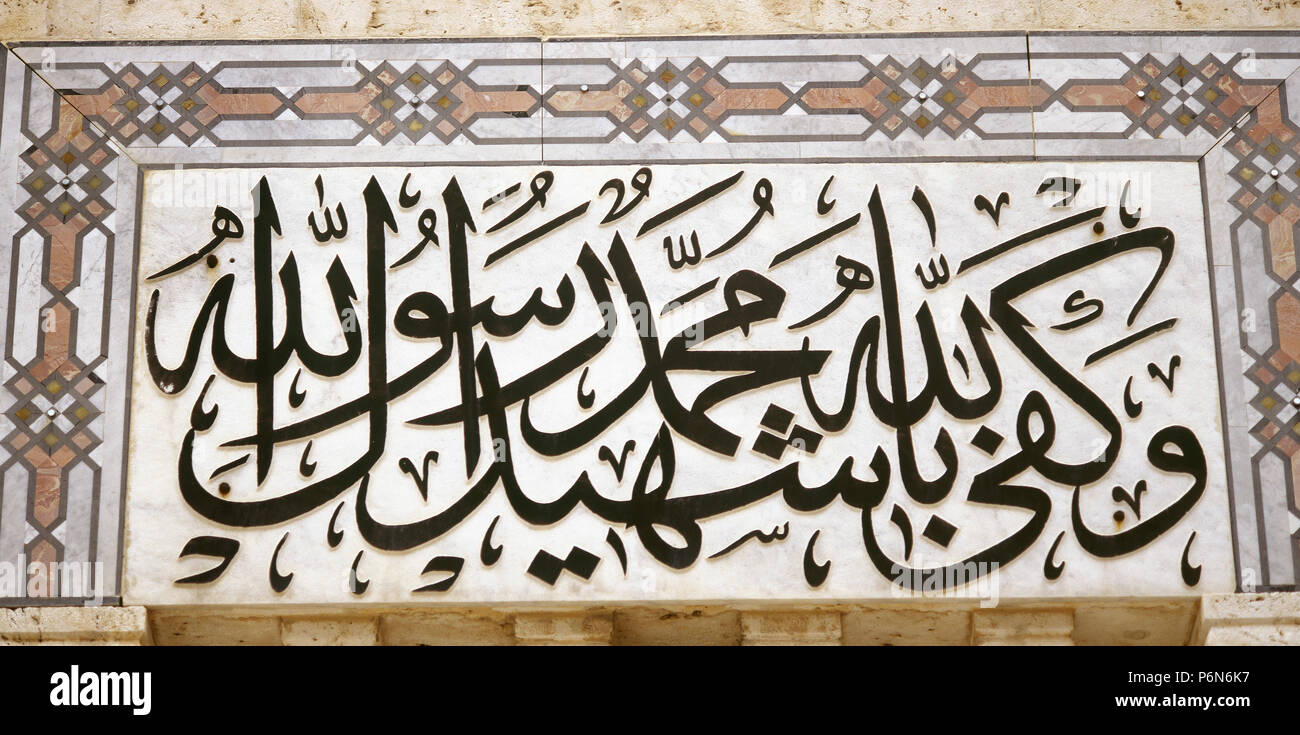 وكفى بالله شهيدا محمد رسول الله
alamy
Image ID: P6N6K7
www.alamy.com